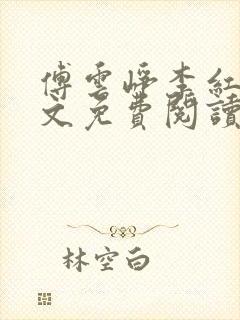 傅雲崢李紅
文免費閱讀
林空白